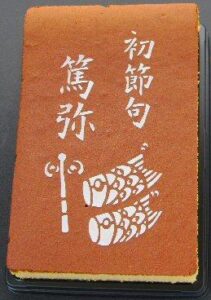 初節句
篤弥